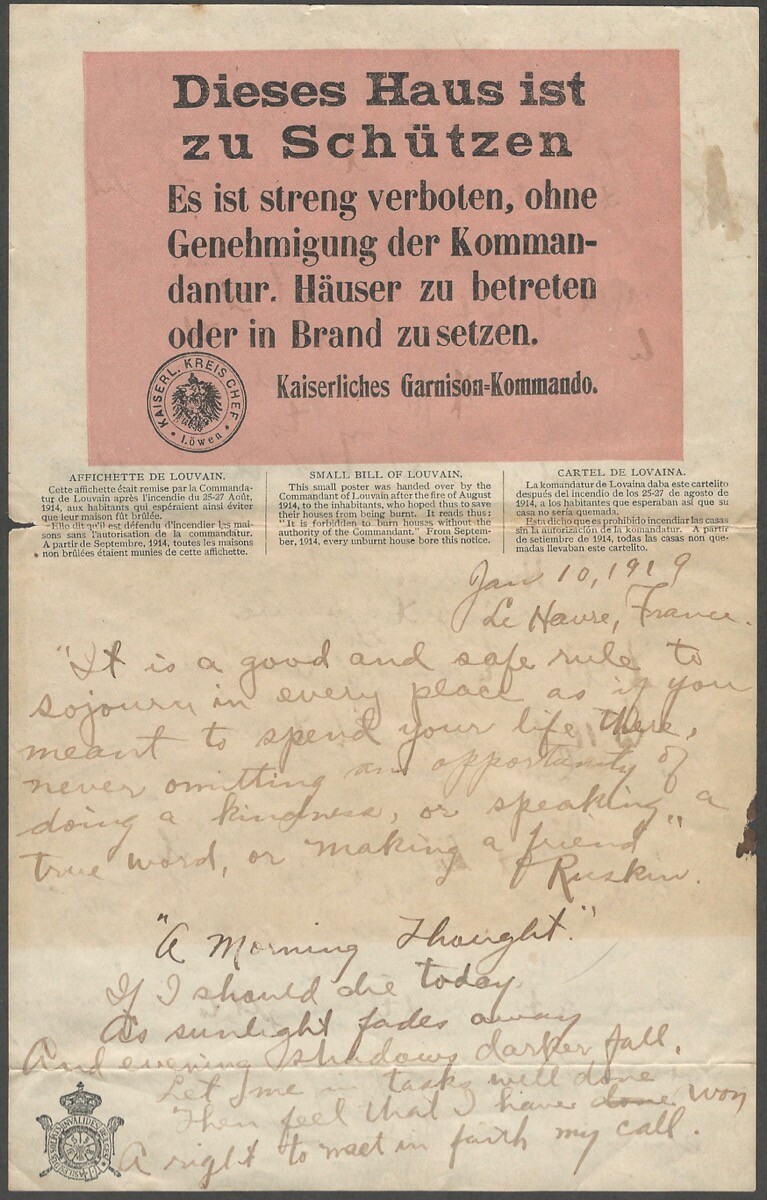 Dieses Haus ist
zu Schützen
Es ist streng verboten, ohne
Genehmigung der Komman-
dantur. Häuser zu betreten
oder in Brand zu setzen.
Kaiserliches Garnison-Kommando.
KAISERL. KREISCHEF
Löwen
AFFICHETTE DE LOUVAIN.
Cette affichette était remise par la Commanda-
tur de Louvain après l'incendie du 25-27 Août,
1914, aux habitants qui espéraient ainsi éviter
que leur maison fût brûlée.
Elle dit qu'il est défendu d'incendier les mai-
sons sans l'autorisation de la commandatur.
A partir de Septembre, 1914, toutes les maisons
non brûlées étaient munies de cette affichette.
SMALL BILL OF LOUVAIN.
This small poster was handed over by the
Commandant of Louvain after the fire of August
1914, to the inhabitants, who hoped thus to save
their houses from being burnt. It reads thus:
"It is forbidden to burn houses without the
authority of the Commandant." From Septem-
ber, 1914, every unburnt house bore this notice.
CARTEL DE LOVAINA.
La komandatur de Lovaina daba este cartelito
después del incendio de los 25-27 de agosto de
1914, a los habitantes que esperaban así que su
casa no sería quemada.
Esto dicho que es prohibido incendiar las casas
sin la autorización de la komandatur. A partir
de setiembre de 1914, todas las casas non que-
madas llevaban este cartelito.
Jan 10, 1919
Le Havre, France.
"It is a good and safe rule to
sojourn in every place as if you
meant to spend your life there,
never omitting an opportunity of
doing a kindness, or speaking a
true word, or making a friend"
Ruskin.
"A Morning Thought."
If I should die today
As sunlight fades away
And evening shadows darker fall,
Let me in tasks well done
Then feel that I have done won
A right to meet in faith my call.